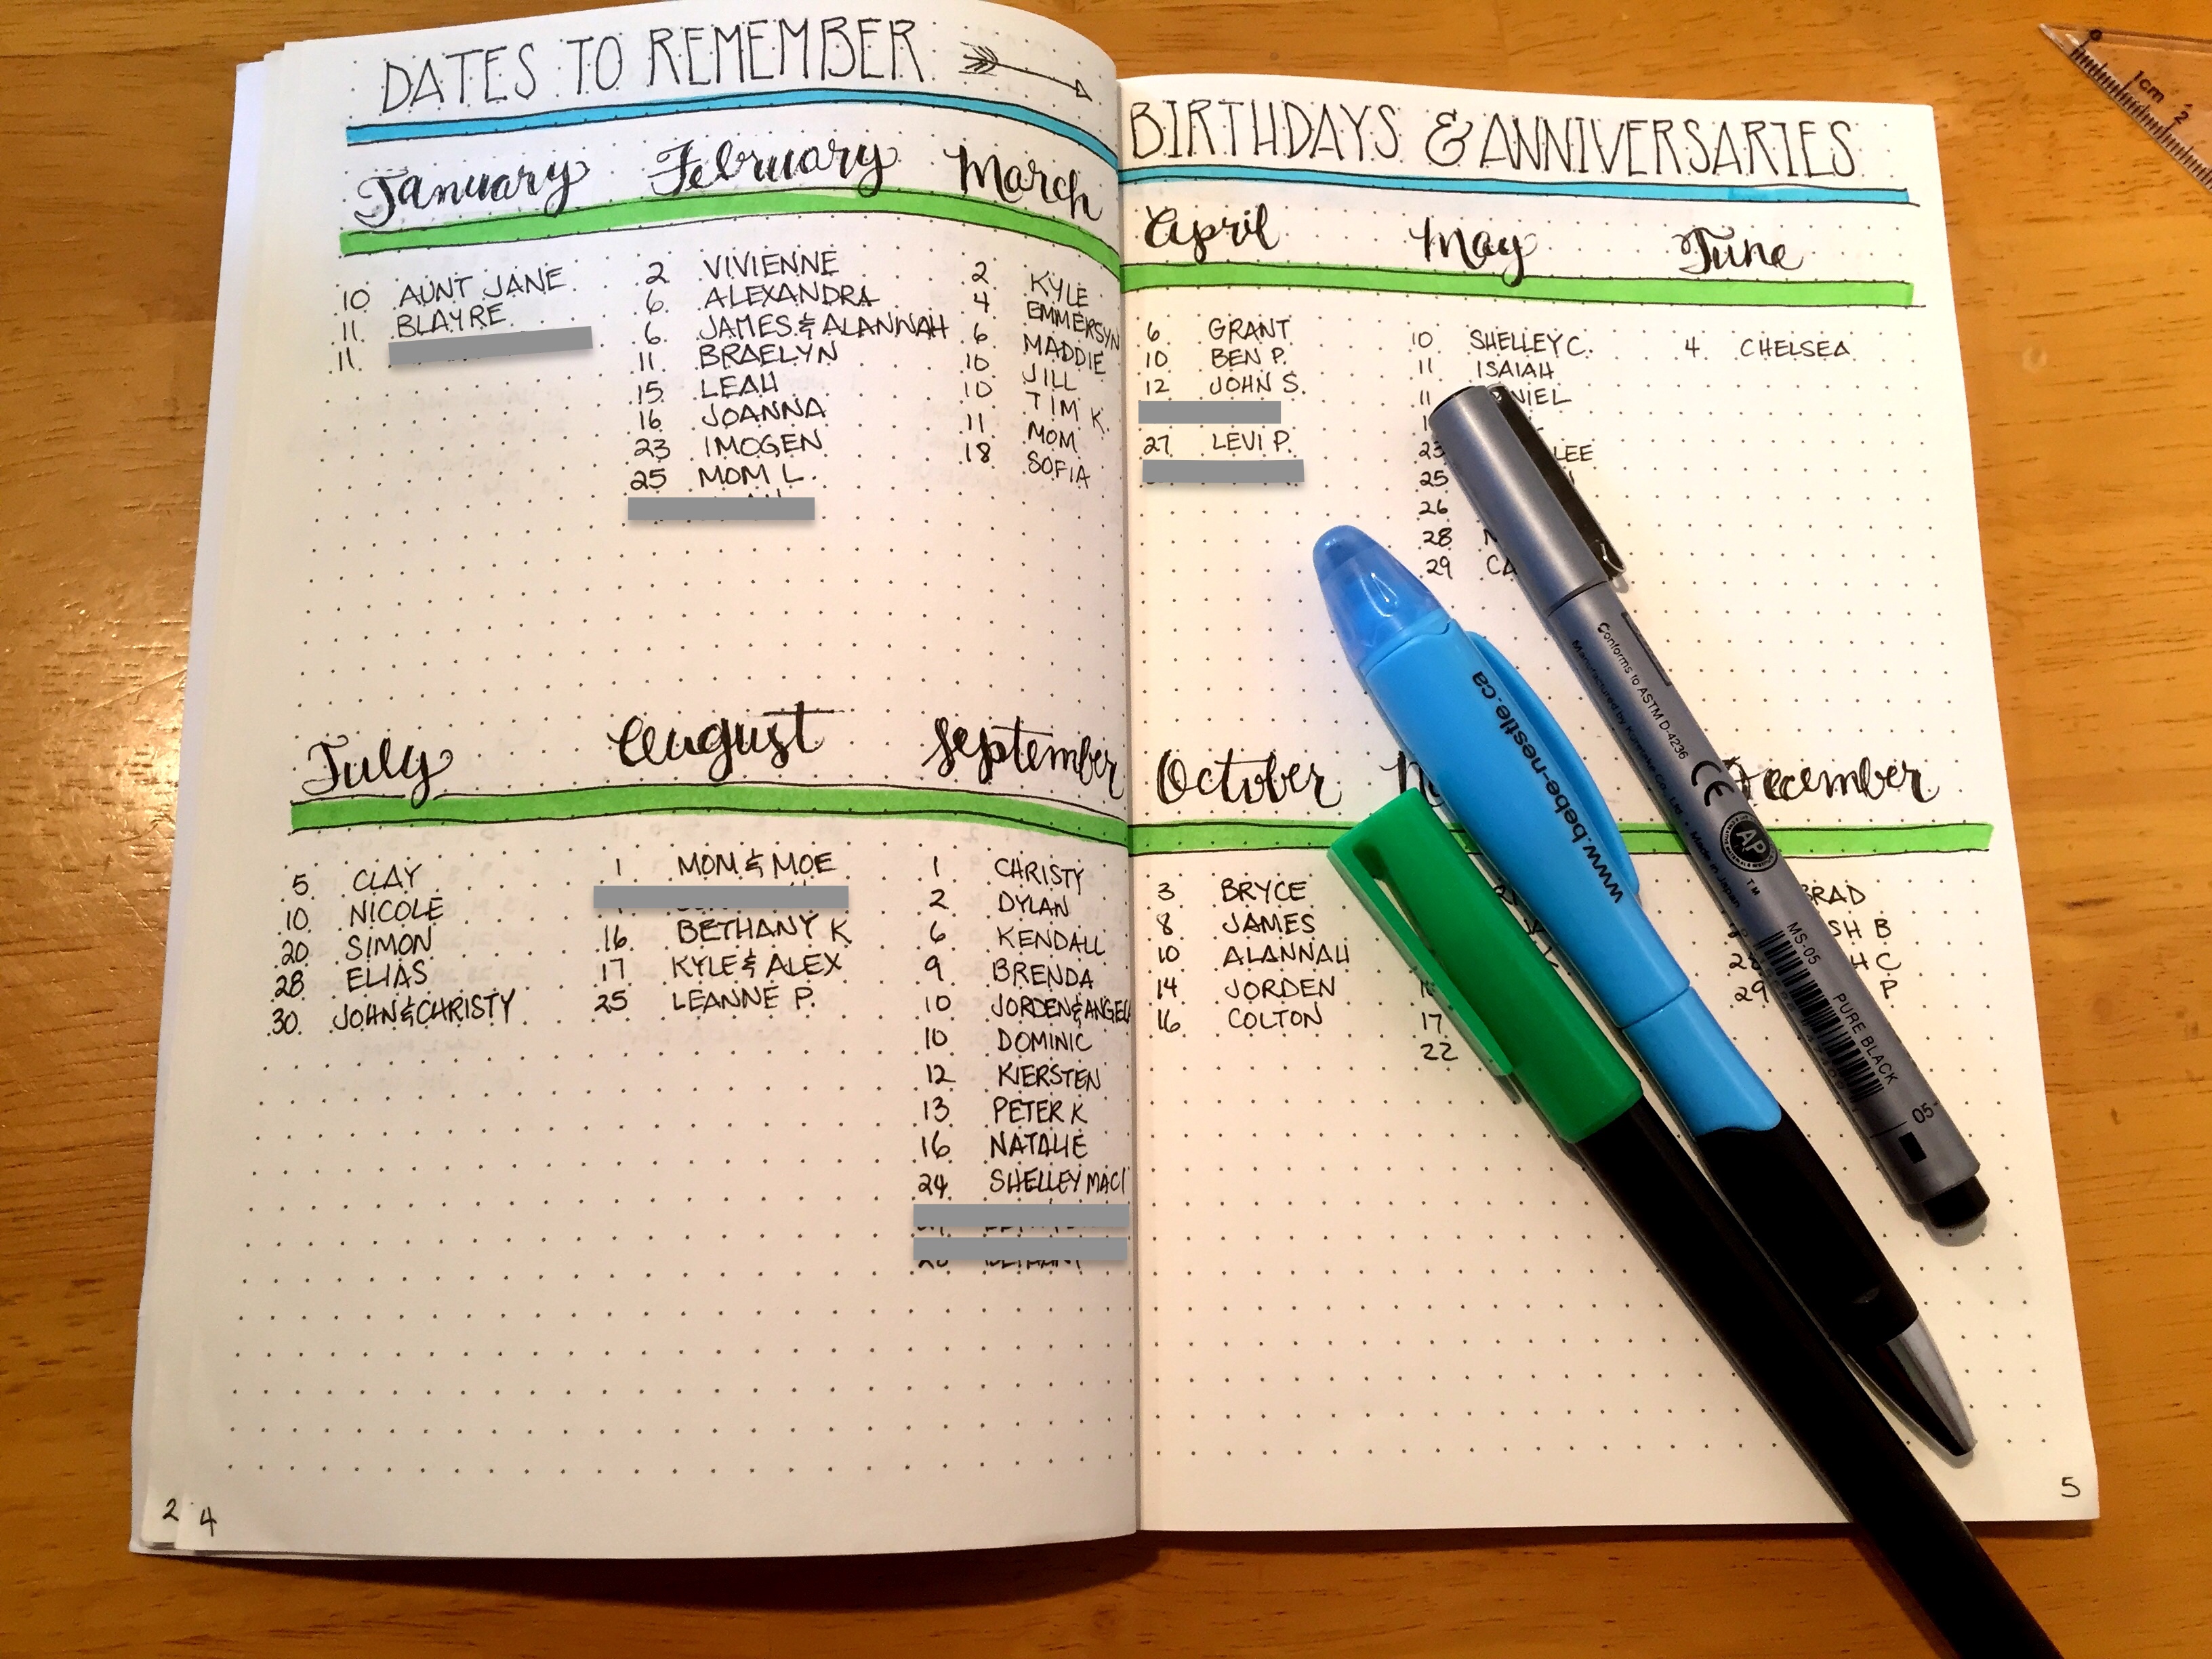 DATES TO REMEMBER
January February March
10 AUNT JANE
11 BLAYRE
11
2 VIVIENNE
6 ALEXANDRA
6 JAMES & ALANNAH
11 BRAELYN
15 LEAH
16 JOANNA
23 IMOGEN
25 MOM L.
2 KYLE
4 EMMERSYN
6 MADDIE
10 JILL
10 TIM K.
11 MOM
18 SOFIA
July August September
5 CLAY
10 NICOLE
20 SIMON
28 ELIAS
30 JOHN & CHRISTY
1 MOM & MOE
16 BETHANY K
17 KYLE & ALEX
25 LEANNE P.
1 CHRISTY
2 DYLAN
6 KENDALL
9 BRENDA
10 JORDEN & ANGELA
10 DOMINIC
12 KIERSTEN
13 PETER K
16 NATALIE
24 SHELLEY MACI
2 4
BIRTHDAYS & ANNIVERSARIES
April May June
6 GRANT
10 BEN P.
12 JOHN S.
27 LEVI P.
10 SHELLEY C.
11 ISAIAH
11
23
25
26
28
29
4 CHELSEA
October December
3 BRYCE
8 JAMES
10 ALANNAH
14 JORDEN
16 COLTON
17
22
BRAD
29 P
5
www.bebe-nestle.ca
Conforms to ASTM D-4236
Manufactured by Kuretake Co., Ltd. • Made in Japan
CE
AP
TM
MS-05 PURE BLACK
05
0 1cm 2